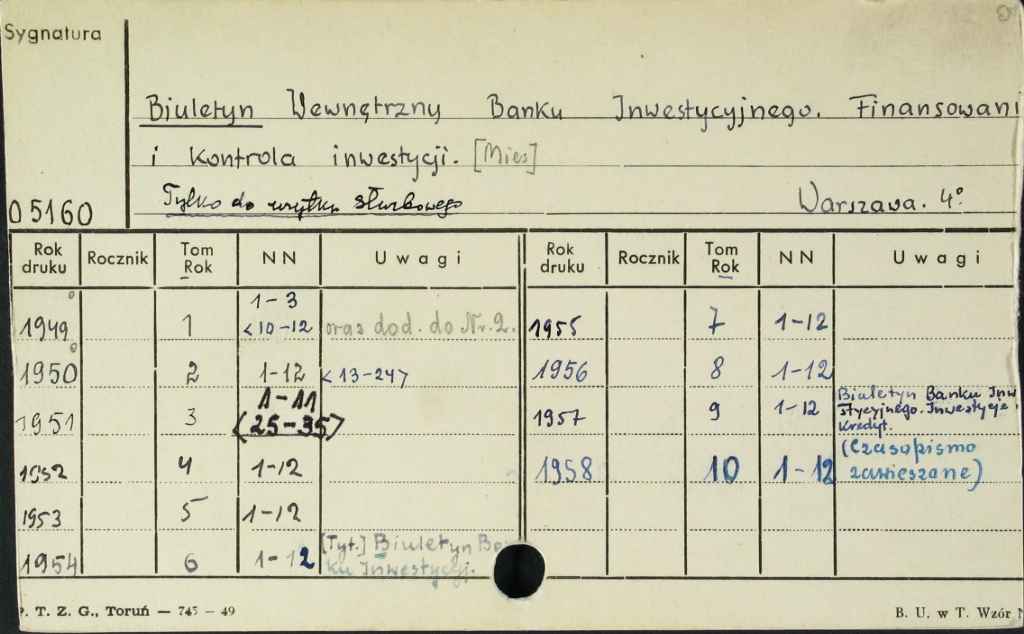 Sygnatura
Biuletyn Wewnętrzny Banku Inwestycyjnego. Finansowani
i Kontrola inwestycji. [Mies]
Tylko do użytku służbowego Warszawa. 4°.
05160
Rok druku Rocznik Tom Rok NN Uwagi Rok druku Rocznik Tom Rok NN Uwagi
1949 1 1-3 <10-12 oraz dod. do Nr. 2. 1955 7 1-12
1950 2 1-12 <13-24> 1956 8 1-12
1951 3 1-11 <25-35> 1957 9 1-12 Biuletyn Banku Inwe stycyjnego. Inwestycje. Kredyt.
1952 4 1-12 1958 10 1-12 (Czasopismo zawieszone)
1953 5 1-12
1954 6 1-12 [Tyt.] Biuletyn Ban ku Inwestycji.
P. T. Z. G., Toruń — 745 — 49 B. U. w T. Wzór